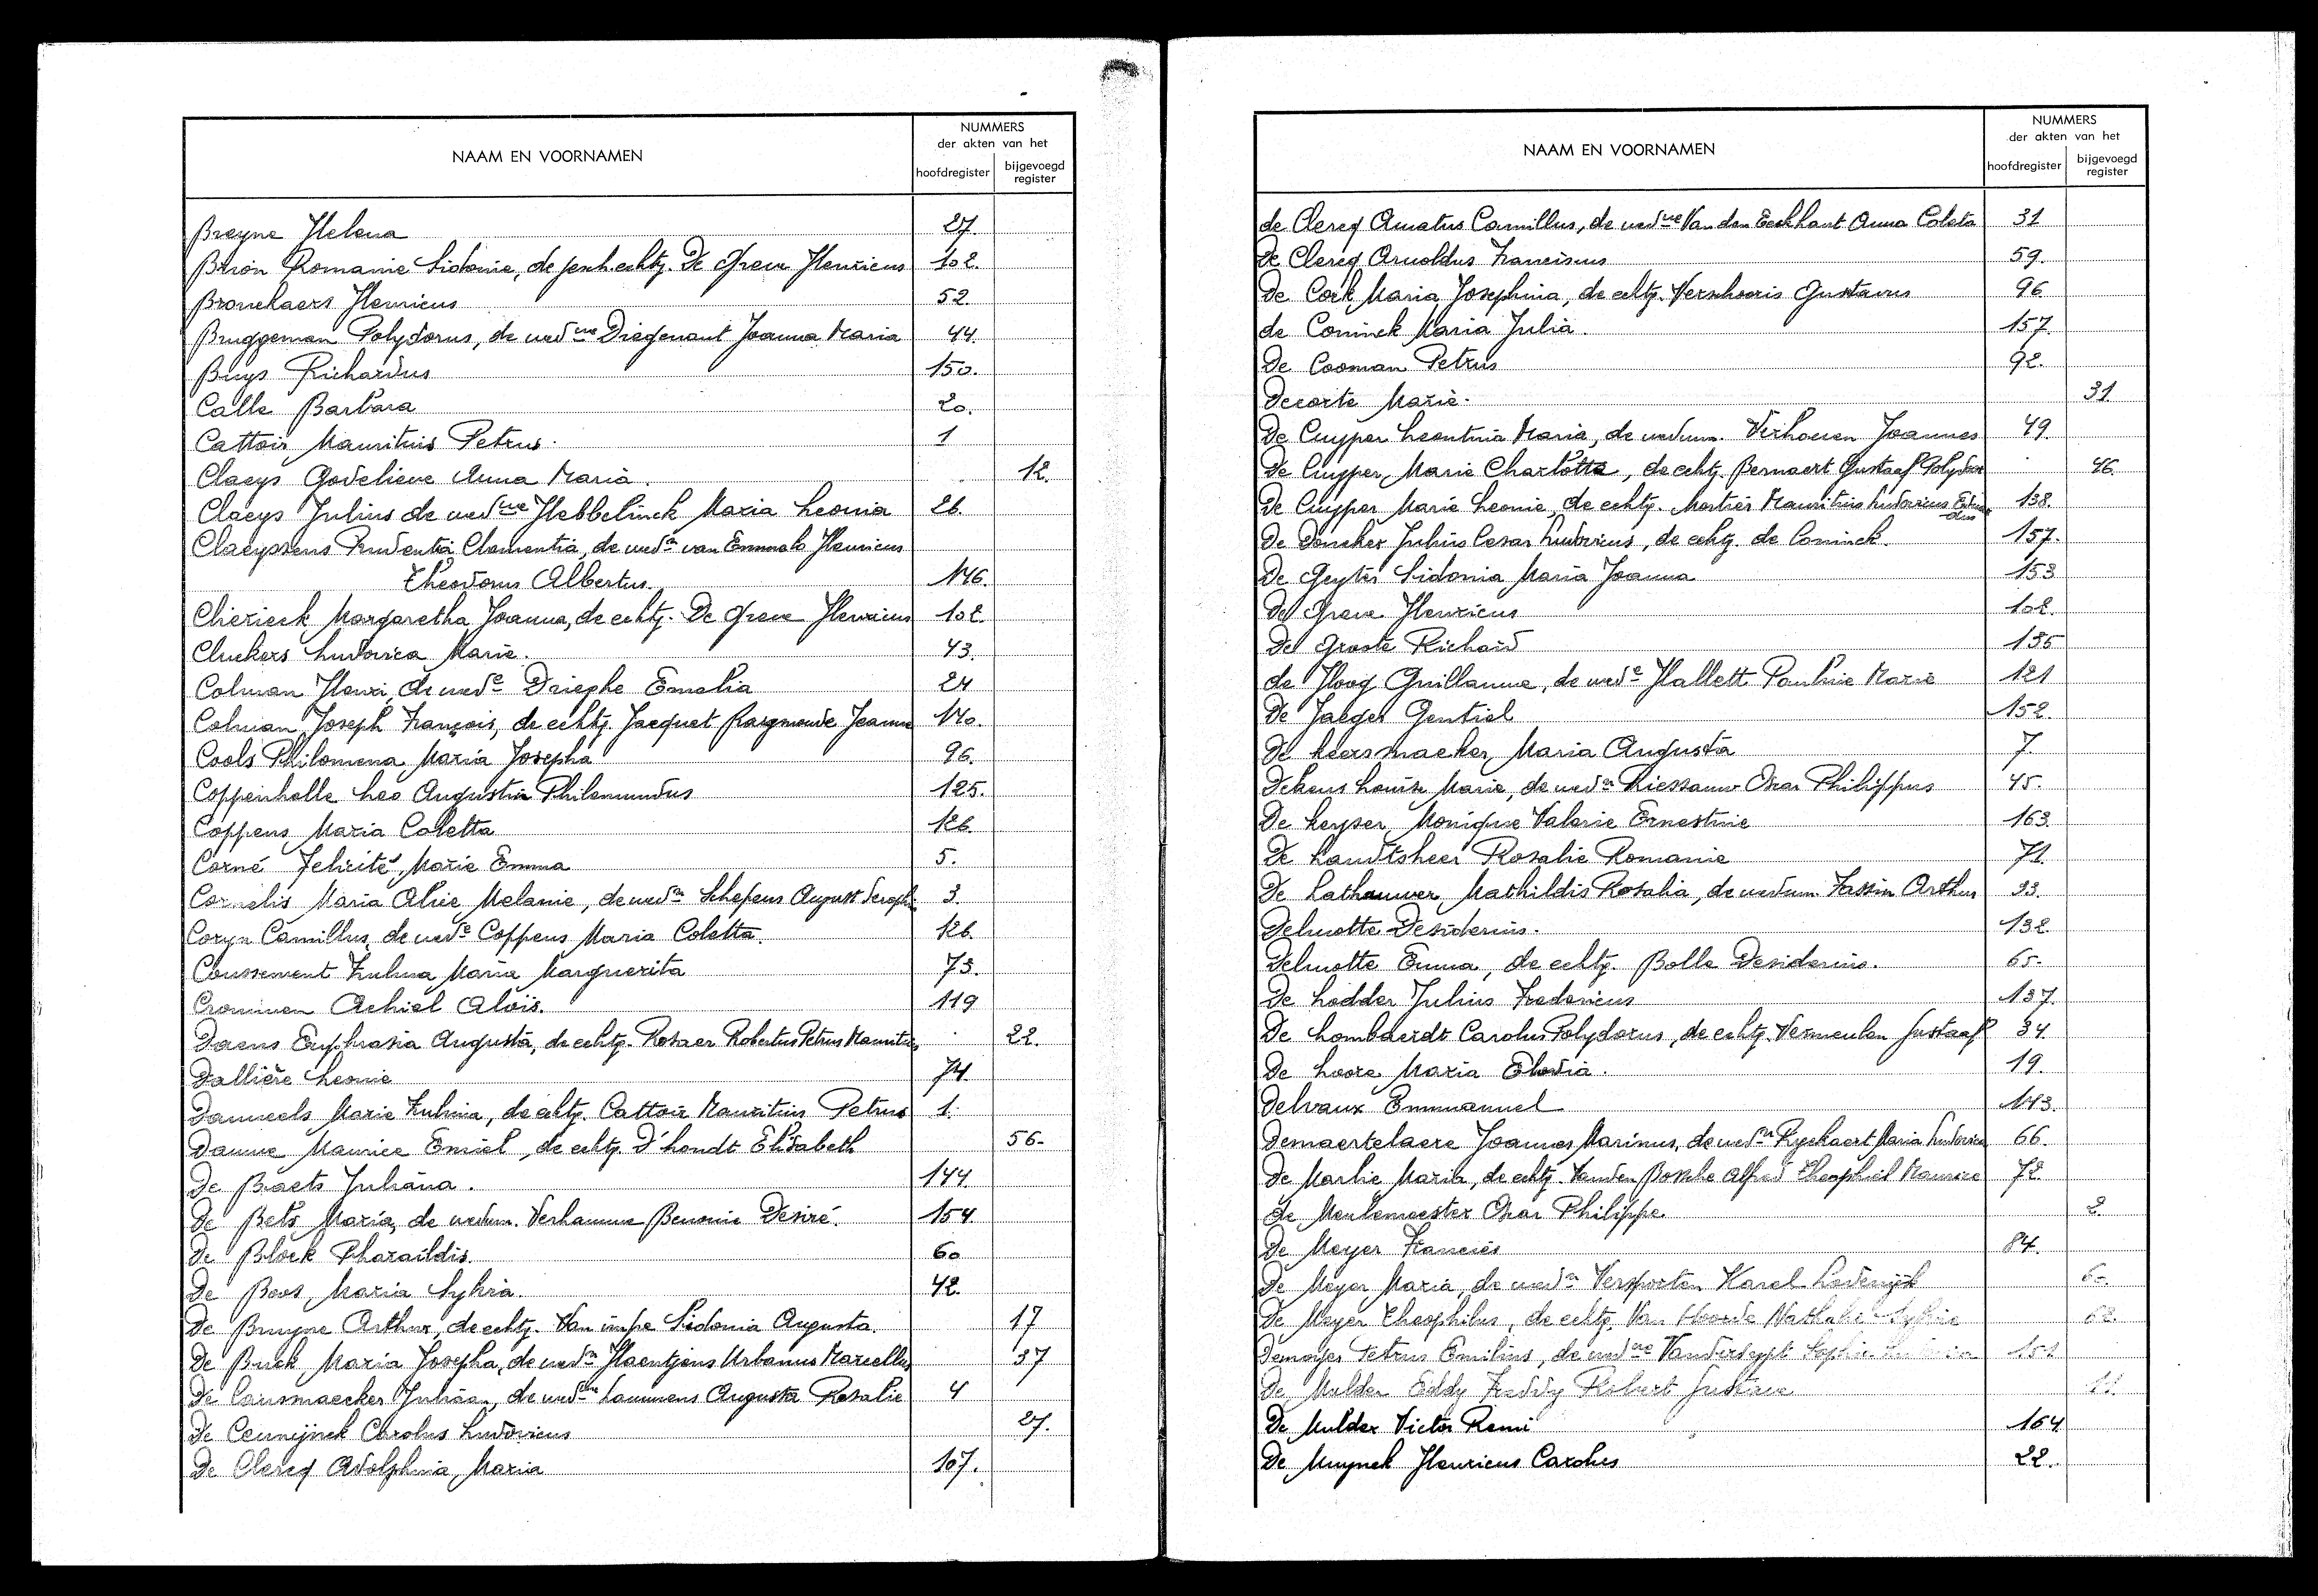 NAAM EN VOORNAMEN
NUMMERS
der akten van het
hoofdregister
bijgevoegd register
Breyne Helena 27
Brion Romanie Sidonie, de echtg. De Greve Henricus 102.
Bronekaers Henricus 52.
Bruggeman Polydorus, de wed^we Diegenant Joanna Maria 44.
Buys Richardus 150.
Calle Barbara 20.
Cattoir Mauritius Petrus. 1
Claeys Godelieve Anna Maria. 12.
Claeys Julius de wed^we Hebbelinck Maria Leonia 26
Claeyssens Prudentia Clementia, de wed^n van Henricus
Theodorus Albertus. 146.
Chierieck Margaretha Joanna, de echtg. De Greve Henricus 102.
Cluckers Ludovica Marie. 43.
Colman Henri, de wed^e Drieghe Emelia 24
Colman Joseph François, de echtg. Jacquet Raymonde Jeanne 140.
Cools Philomena Maria Josepha 96.
Coppenholle Leo Augustin Philemundus 125.
Coppens Maria Coletta 126.
Corné Felicité, Marie Emma 5.
Cornelis Maria Alice Melanie, de wed^n Schepens August Seraph 3.
Coryn Camillus, de wed^e Coppens Maria Coletta. 126.
Coussement Zulma Maria Marguerita 73.
Crommen Achiel Aloïs. 119
Daens Euphrasia Augusta, de echtg. Rosaer Robertus Petrus Mauritius 22.
Dallière Leonie 74.
Danneels Marie Zulma, de echtg. Cattoir Mauritius Petrus 1.
Danne Maurice Emiel, de echtg. D'hondt Elisabeth 56.
De Braets Juliana. 144
De Bets Maria, de wedum. Verhamme Benonie Desiré. 154.
De Block Pharaïldis. 60
De Boos, Maria Sylvia. 42.
De Bruyne Arthur, de echtg. Van impe Sidonia Augusta. 17
De Buck Maria Josepha, de wed^n Haentjens Urbanus Marcellus 37
De Causmaecker Julien, de wed^we Lammens Augusta Rosalie 4
De Ceunijnck Carolus Ludovicus 27.
De Clercq Adolphina, Maria 107.
NAAM EN VOORNAMEN
NUMMERS
der akten van het
hoofdregister
bijgevoegd register
de Clercq Amatus Camillus, de wed^we Van den Eeckhaut Anna Coleta 31
De Clercq Arnoldus Franciscus 59.
De Cock Maria Josephina, de echtg. Verschooris Gustavus 96
de Coninck Maria Julia. 157.
De Cooman Petrus 92.
Decorte Marie. 31
De Cuyper Leontina Maria, de wedum. Verhoeven Joannes 49.
De Cuyper, Marie Charlotte, de echtg. Bernaert Gustaaf Polydoor 46.
De Cuyper Marie Leonie, de echtg. Mortier Mauritius Ludovicus Eduardus 138.
De Doncker Julius Cesar Ludovicus, de echtg. de Coninck. 157.
De Geyter Sidonia Maria Joanna 153
De Greve Henricus 102.
De Groote Richard 135
de Hoog Guillaume, de wed^e Hallett Pauline Marie 121
De Jaeger Gentiel 152.
De Keersmaeker, Maria Augusta 7.
Dekens Louise Marie, de wed^n Riessauw Oscar Philippus 45.
De Keyser, Monique Valerie Ernestine 163.
De Landtsheer Rosalie Romanie 71.
De Lathauwer Mathildis Rosalia, de wedum. Tassin Arthur 93.
Delmotte Desiderius. 132.
Delmotte Emma, de echtg. Bolle Desiderius. 65.
De Lodder Julius Fredericus 137.
De Lombaerdt Carolus Polydorus, de echtg. Vermeulen Gustaaf 34.
De Loore Maria Elodia. 19.
Delvaux Emmanuel 143.
Demaertelaere Joannes Marinus, de wed^n Ryckaert Maria Ludovica 66.
De Marlie Maria, de echtg. Vanden Bossche Alfred Theophiel Maurice 72.
De Meulemeester Oscar Philippe. 2.
De Meyer Francies 84.
De Meyer Maria, de wed^n Verspeeten Karel Lodewijk 60.
De Meyer Theophilus, de echtg. Van Hoorde Nathalie Sylvie 62.
Demoyer Petrus Emilius, de wed^we Sophie 151
De Mulder Eddy Freddy Robert Gustave 11.
De Mulder Victor Remi 164
De Muynck Henricus Carolus 22.